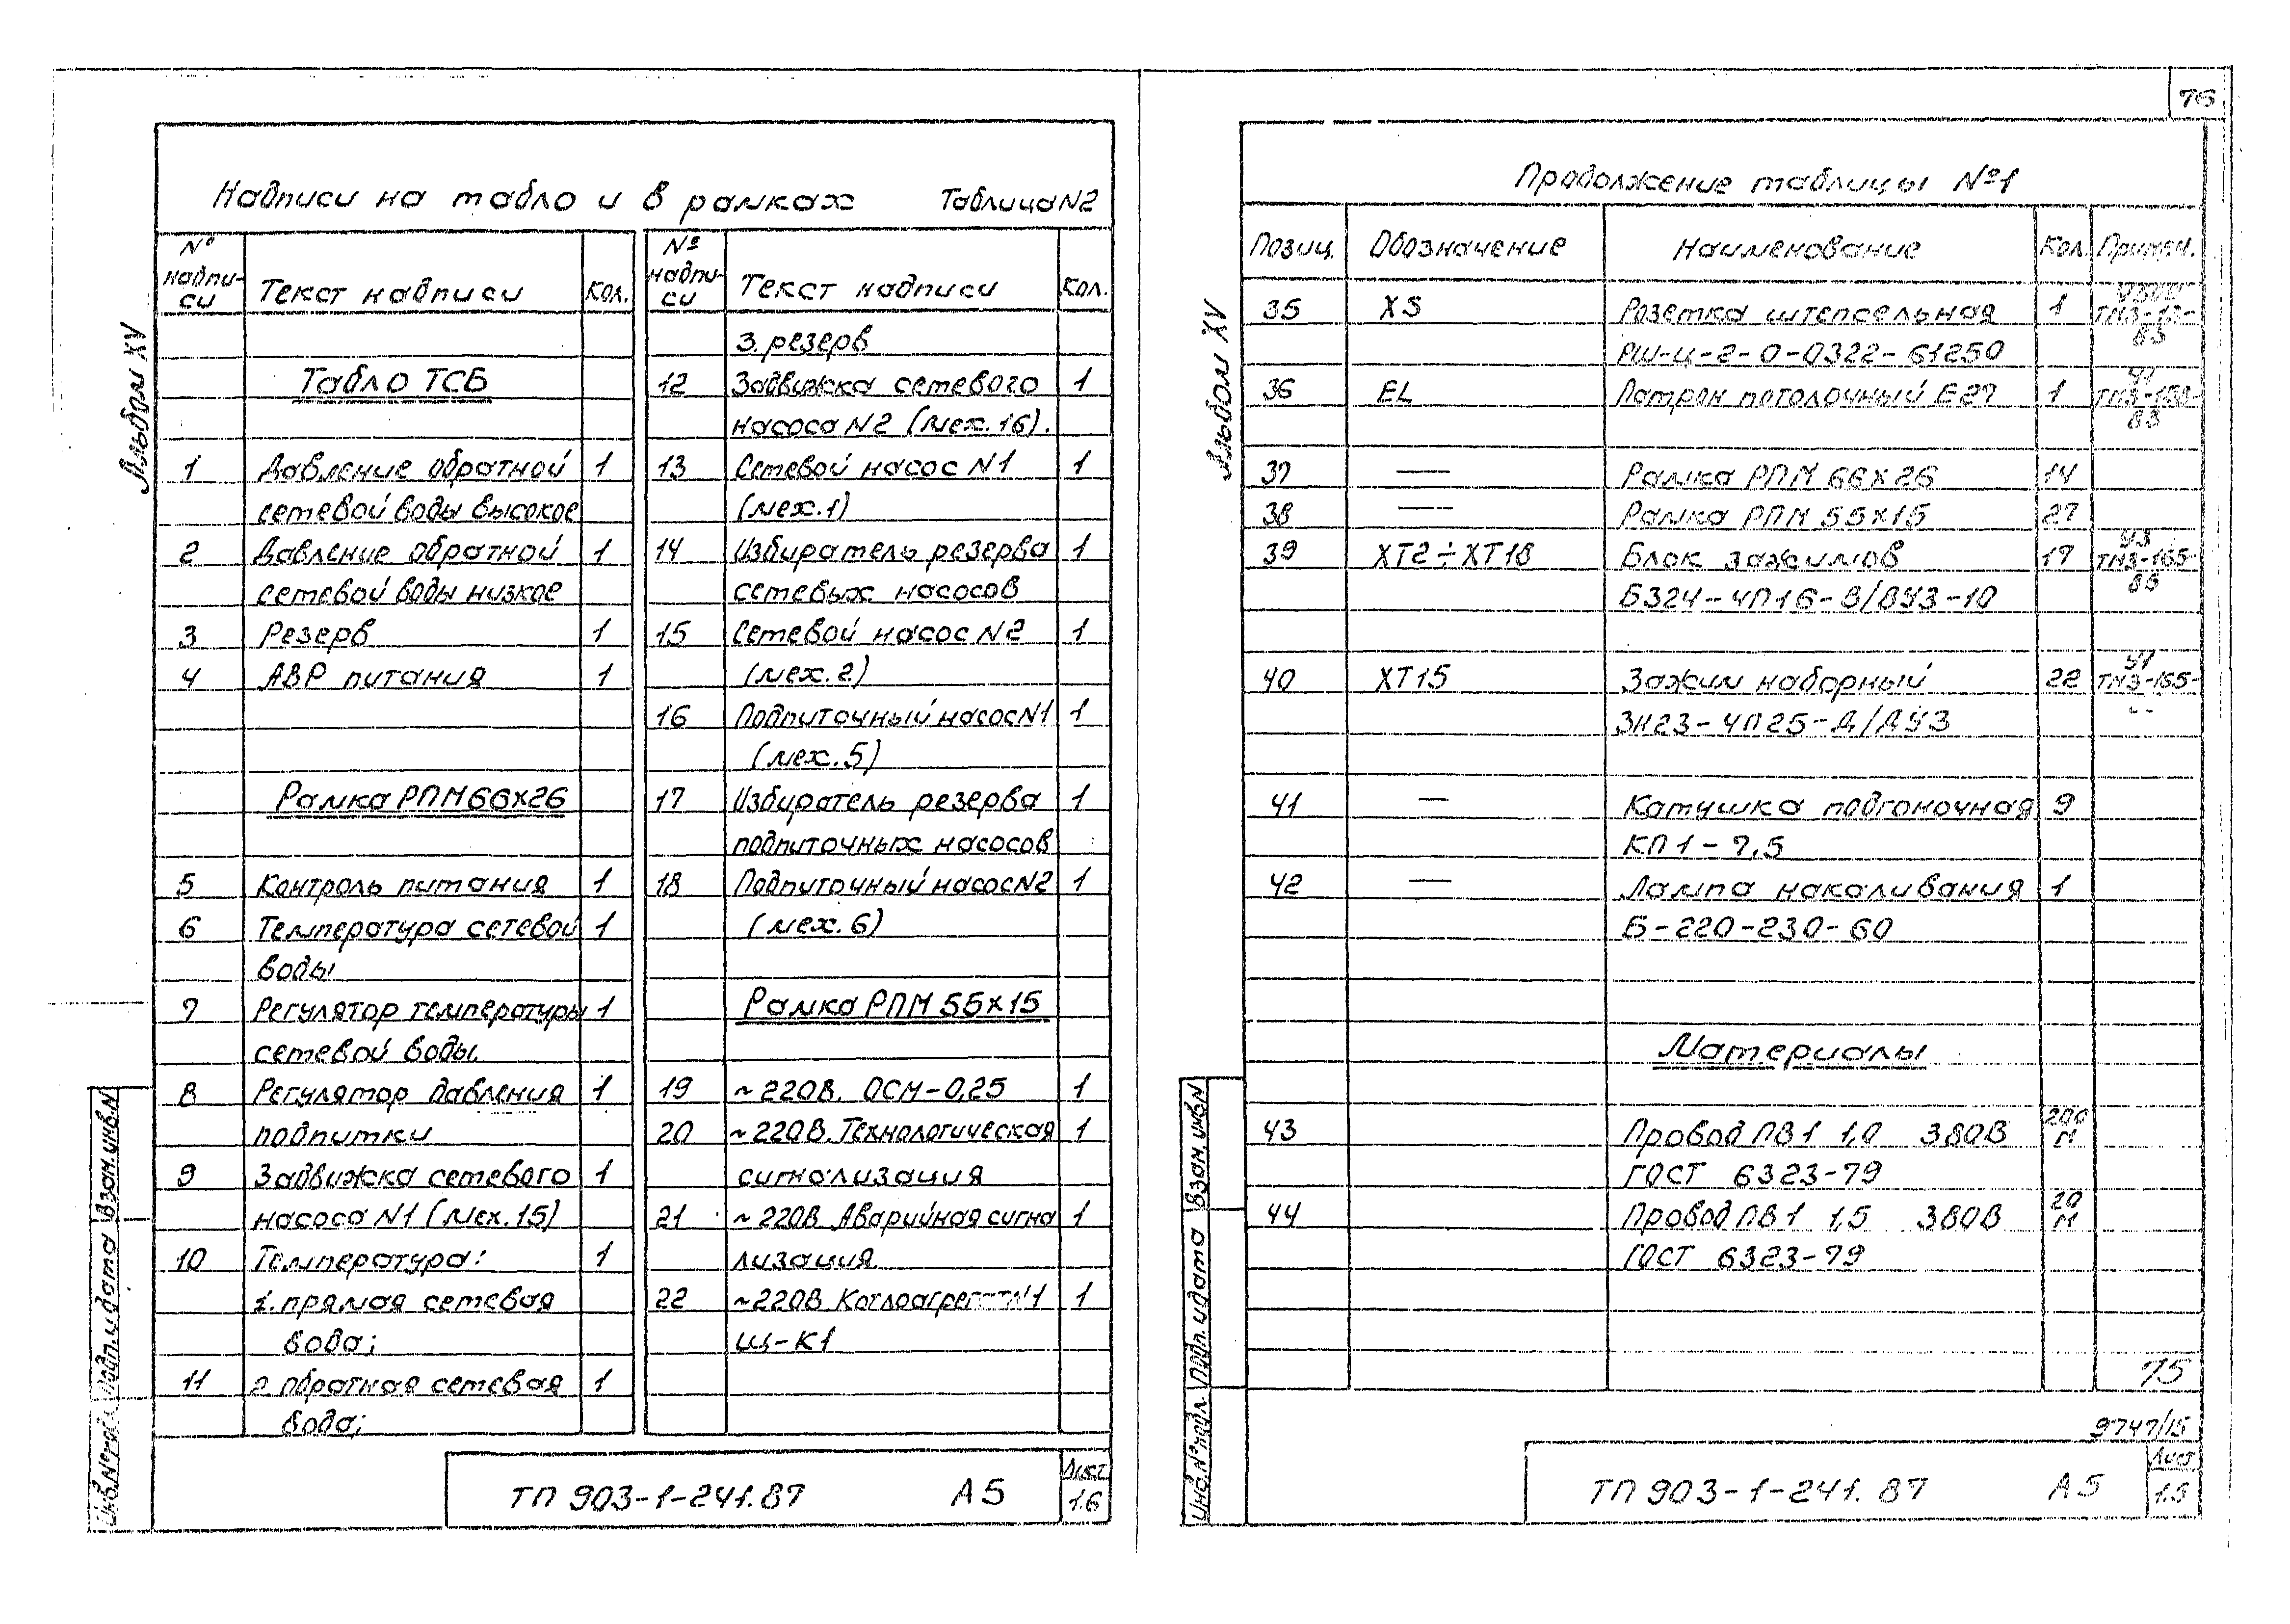 76
Альбом XV
Надписи на табло и в рамках Таблица N2
N° надпи-си Текст надписи Кол.
Табло ТСБ
1 Давление обратной 1
сетевой воды высокое
2 Давление обратной 1
сетевой воды низкое
3 Резерв 1
4 АВР питания 1
Рамка РПМ 66×26
5 Контроль питания 1
6 Температура сетевой 1
воды
7 Регулятор температуры 1
сетевой воды
8 Регулятор давления 1
подпитки
9 Задвижка сетевого 1
насоса N1 (мех.15)
10 Температура: 1
1. прямая сетевая
вода;
11 2. обратная сетевая 1
вода;
№ надпи-си Текст надписи Кол.
3. резерв
12 Задвижка сетевого 1
насоса N2 (мех.16).
13 Сетевой насос N1 1
(мех.1)
14 Избиратель резерва 1
сетевых насосов
15 Сетевой насос N2 1
(мех.2)
16 Подпиточный насос N1 1
(мех.5)
17 Избиратель резерва 1
подпиточных насосов
18 Подпиточный насос N2 1
(мех.6)
Рамка РПМ 55×15
19 ~220В. ОСМ-0,25 1
20 ~220В. Технологическая 1
сигнализация
21 ~220В Аварийная сигна 1
лизация
22 ~220В Котлоагрегат N1 1
Щ-К1
Инв.N° подл. Подп. и дата Взам.инв.N
ТП 903-1-241.87 А5
Лист
1.6
Альбом XV
Продолжение таблицы №1
Позиц. Обозначение Наименование Кол. Примеч.
35 XS Розетка штепсельная 1
РШ-Ц-2-0-0322-61250
36 EL Патрон потолочный Е27 1
37 — Рамка РПМ 66×26 14
38 — Рамка РПМ 55×15 27
39 XT2÷XT18 Блок зажимов 17 У3 ТМ3-165-83
Б324-4П16-В/ВУ3-10
40 XT15 Зажим наборный 22 У1 ТМ3-165-
ЗН23-4П25-Д/ДУ3
41 — Катушка подгоночная 9
КП1-7,5
42 — Лампа накаливания 1
Б-220-230-60
Материалы
43 Провод ПВ1 1,0 380В 200 м
ГОСТ 6323-79
44 Провод ПВ1 1,5 380В 20 м
ГОСТ 6323-79
75
9747/15
Инв.N° подл. Подп. и дата Взам.инв.N
ТП 903-1-241.87 А5
Лист
1.5